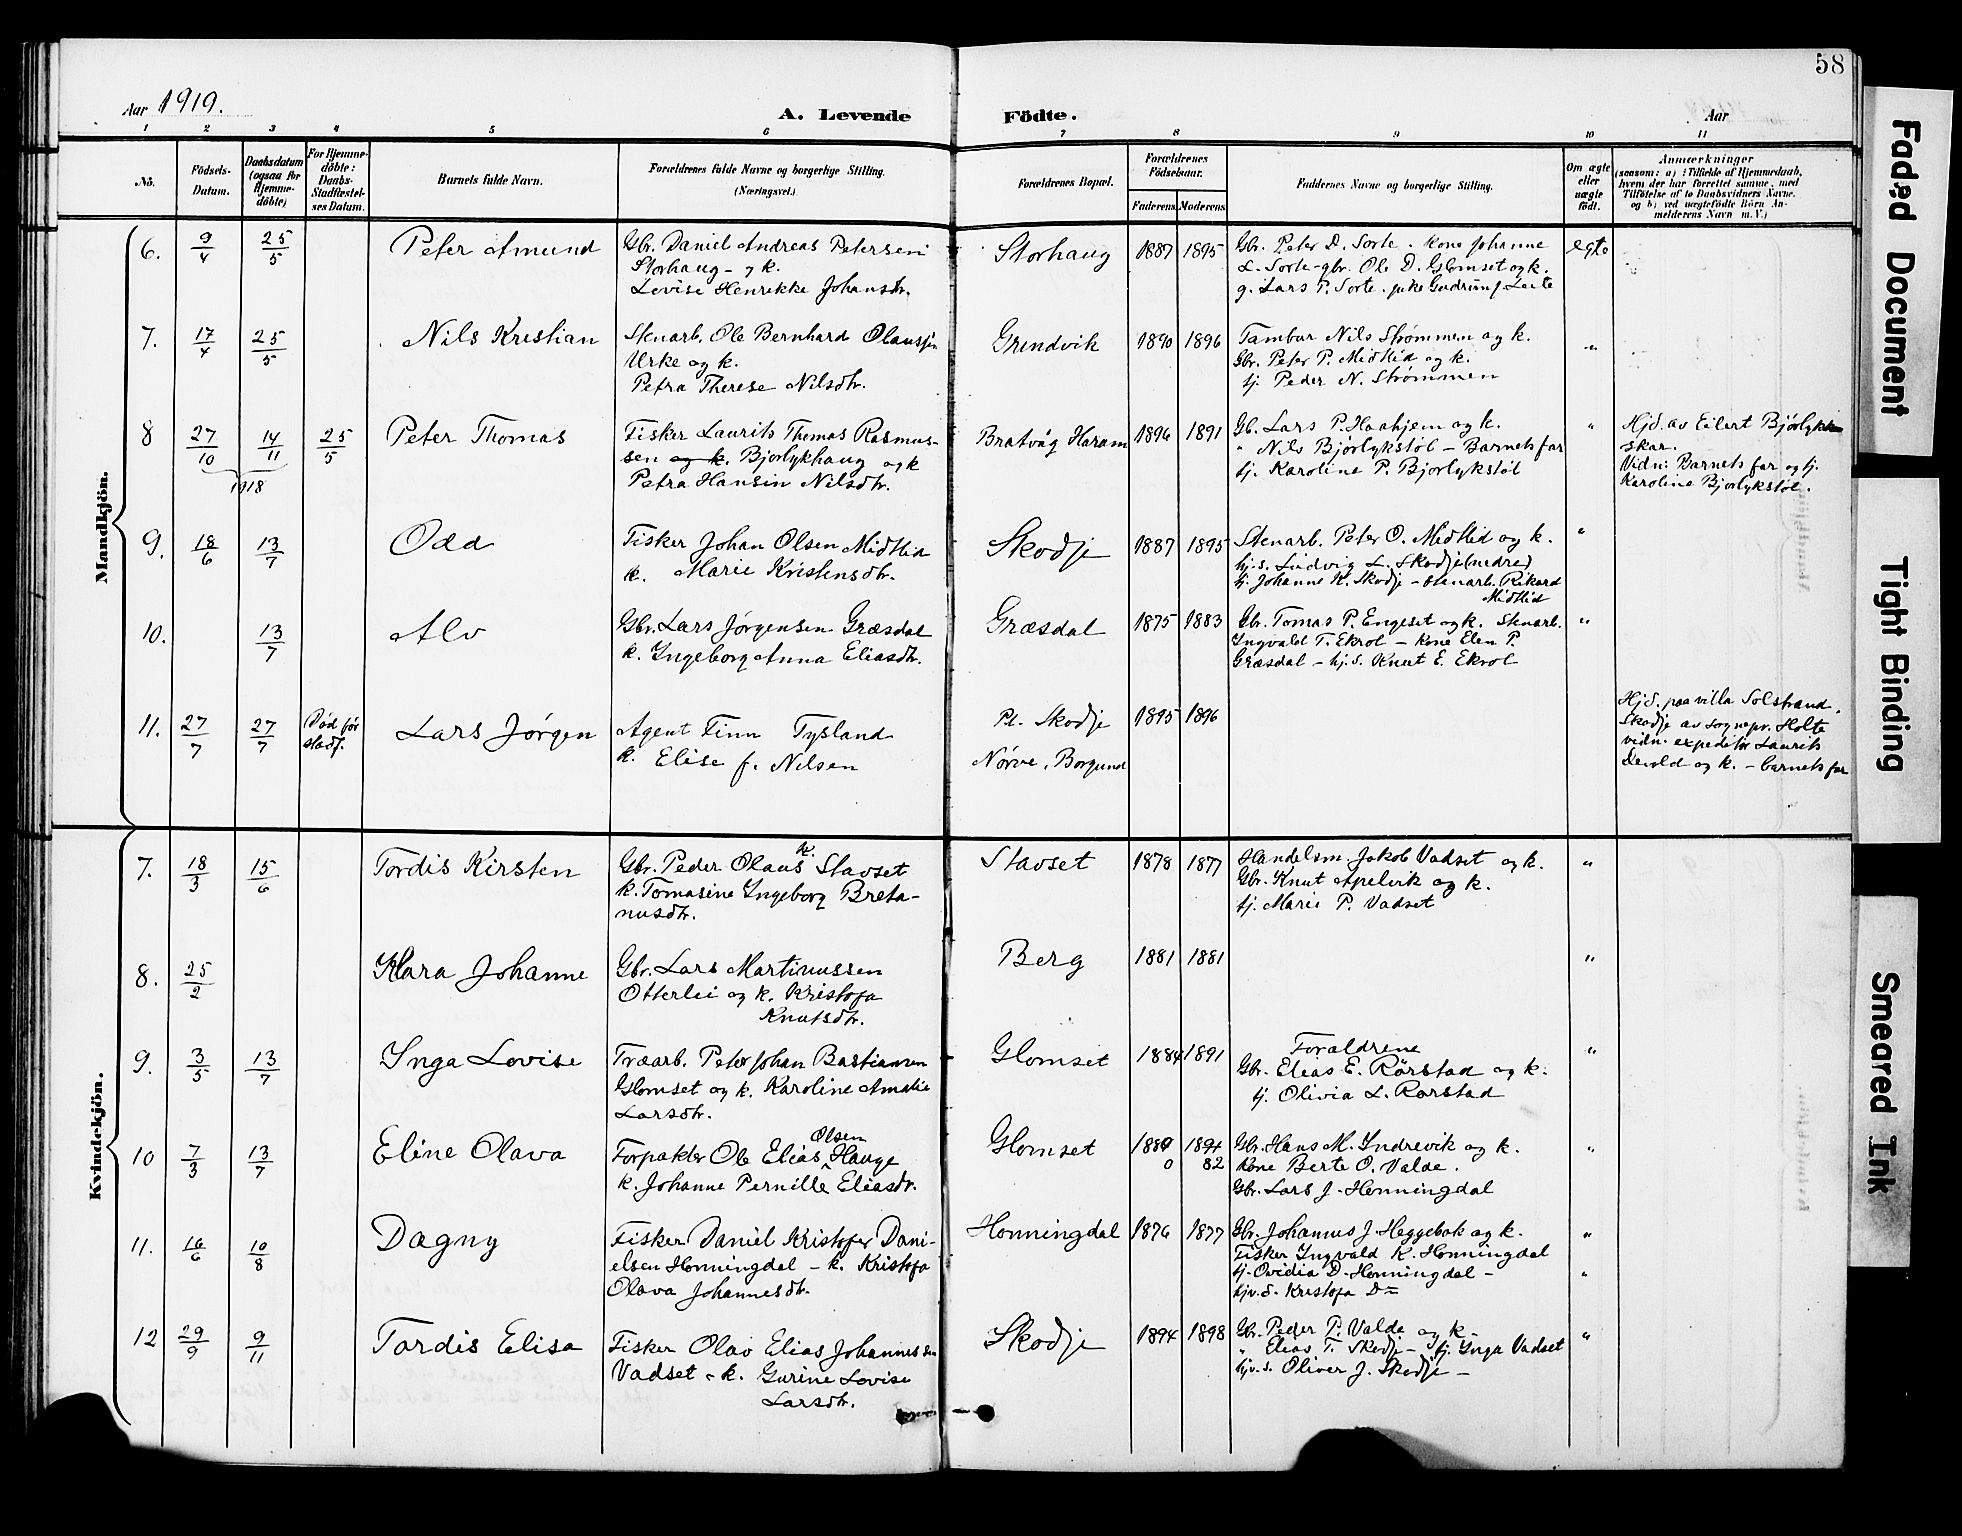 58
Aar 1919.
A. Levende Födte.
Aar
1 2 3 4 5 6 7 8 9 10 11
No.
Födsels-Datum.
Daabsdatum (ogsaa for Hjemmedöbte)
For Hjemmedöbte: Daabs-Stadfæstelses Datum.
Barnets fulde Navn.
Forældrenes fulde Navne og borgerlige Stilling.
(Næringsvei.)
Forældrenes Bopæl.
Forældrenes Födselsaar.
Faderens Moderens
Faddernes Navne og borgerlige Stilling.
Om ægte eller uægte født.
Anmærkninger
(saasom: a) i Tilfælde af Hjemmedaab, hvem der har forrettet samme, med Tilföielse af to Daabsvidners Navne, og b) ved uægtefödte Börn Anmelderens Navn m. V.)
Mandkjön.
6. 9/4 25/5 Peter Amund
Gbr. Daniel Andreas Petersen
Storhaug - og k.
Lovise Henrikke Johansdtr.
Storhaug 1887 1895
Gbr. Peter D. Sorte. kone Johanne
L. Sorte - gbr. Ole D. Glomset og k.
g. Lars P. Sorte. pike Gudrun J. Leite
egte
7. 17/4 25/5 Nils Kristian
Stenarb. Ole Bernhard Olaussen
Urke og k.
Petra Therese Nilsdtr.
Grindvik 1890 1896
Tambur Nils Strømmen og k.
Gbr. Peter P. Midtlid og k.
tj. Peder N. Strømmen
"
8 27/10 14/11 1918 25/5 Peter Thomas
Fisker Laurits Thomas Rasmus-
sen og k. Bjorlykhaug og k
Petra Hansin Nilsdtr.
Bratvåg Haram 1896 1891
Gb. Lars P. Haahjem og k.
" Nils Bjørlykstøl - Barnets far
tj. Karoline P. Bjorlykstøl
"
Hjd. av Eilert Bjørlyk-
skar.
Vidn: Barnets far og tj.
Karoline Bjorlykstøl.
9. 18/6 13/7 Odd
Fisker Johan Olsen Midtlid
k. Marie Kristensdtr.
Skodje 1887 1895
Stenarb. Peter O. Midtlid og k.
hj.s. Ludvig L. Skodje (nedre)
tj. Johanne K. Skodje - stenarb. Rikard
Midtlid
"
10. 13/7 Alv
Gbr. Lars Jørgensen Græsdal
k. Ingeborg Anna Eliasdtr.
Græsdal 1875 1883
Gbr. Tomas P. Engeset og k. Stenarb.
Ingvald T. Ekrol - kone Elen P.
Græsdal - hj.s. Knut E. Ekrol
"
11. 27/7 27/7 Død før stadf. Lars Jørgen
Agent Finn Tysland
k. Elise f. Nilsen
Pl. Skodje
Nørve, Borgund
1895 1896
Hjd. paa villa Solstrand.
Skodje av sognepr. Holte
vidn. expeditør Laurits
Devold og k. - barnets far
Kvindekjön.
7. 18/3 15/6 Tordis Kirsten
Gbr. Peder Olaus K. Stavset
k. Tomasine Ingeborg Breta-
nusdtr.
Stavset 1878 1877
Handelsm. Jakob Vadset og k.
Gbr. Knut Apelvik og k.
tj. Marie P. Vadset
"
8. 25/2 Klara Johanne
Gbr. Lars Martinussen
Otterlei og k. Kristofa
Knutsdtr.
Berg 1881 1881
"
9. 3/5 13/7 Inga Lovise
Træarb. Peter Johan Bastiansen
Glomset og k. Karoline Amalie
Larsdtr.
Glomset 1884 1891
Forældrene
Gbr. Elias E. Rørstad og k.
tj. Olivia L. Rørstad
"
10 7/3 13/7 Eline Olava
Olsen
Forpakter Ole Elias Hauge
k. Johanne Pernille Eliasdtr.
Glomset 1889 1894
0 82
Gbr. Hans M. Yndrevik og k.
Kone Berte O. Valde.
Gbr. Lars J. Honningdal
"
11. 16/6 10/8 Dagny
Fisker Daniel Kristofer Dani-
elsen Honningdal - k. Kristofa
Olava Johannesdtr.
Honningdal 1876 1877
Gbr. Johannes J. Heggebak og k.
Fisker Ingvald K. Honningdal
tj. Ovidia D. Honningdal -
hjv.s. Kristofa Do
"
"
12 29/9 9/11 Tordis Elisa
Fisker Olav Elias Johannessen
Vadset - k. Gurine Lovise
Larsdtr.
Skodje 1894 1898
Gbr. Peder P. Valde og k.
" Elias T. Skodje - tj. Inga Vadset
hjv.s. Oliver J. Skodje -
"
Faded Document
Tight Binding
Smeared Ink